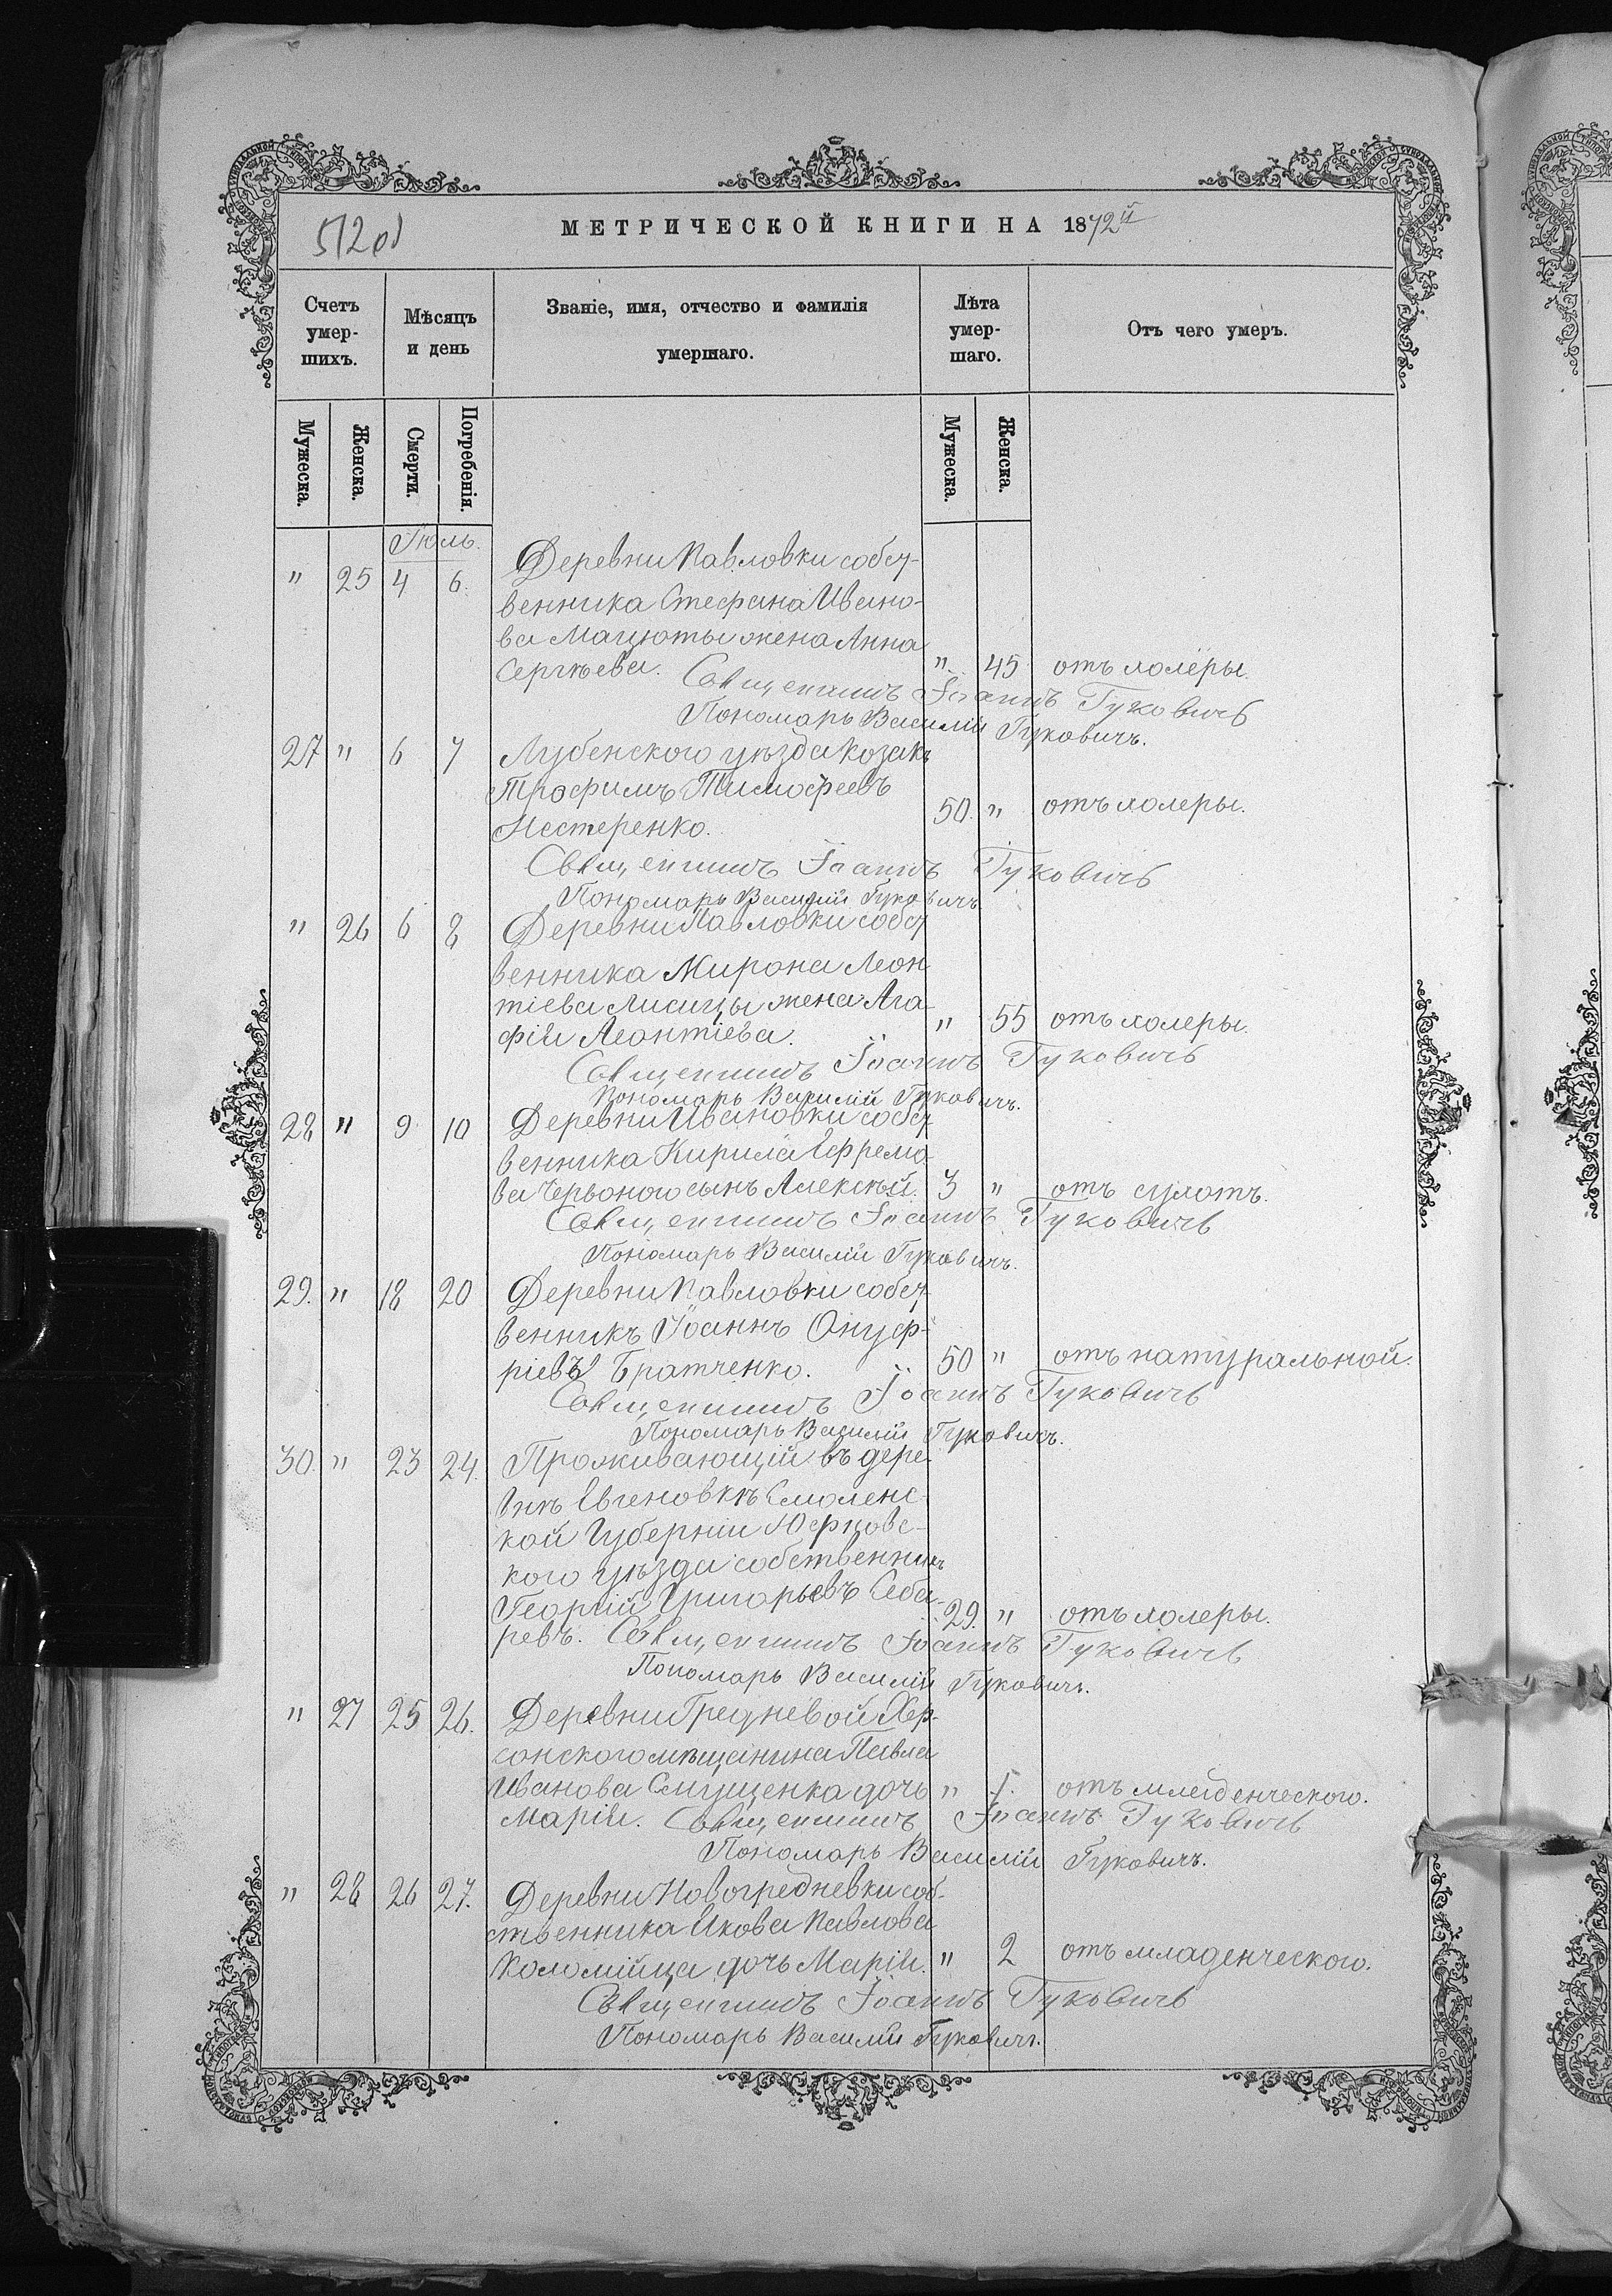 512об
МЕТРИЧЕСКОЙ КНИГИ НА 1872й
Счетъ умер-шихъ.
Мѣсяцъ и день
Званіе, имя, отчество и фамилія умершаго.
Лѣта умер-шаго.
Отъ чего умеръ.
Мужеска. Женска. Смерти. Погребенія. Мужеска. Женска.
Іюль.
" 25 4 6. Деревни Павловки собст-
венника Стефана Ивано-
ва Мацюты жена Анна
Сергѣева. " 45 отъ холеры.
Священникъ Іоаннъ Гуковичъ
Пономарь Василій Гуковичъ.
27 " 6 7 Лубенского уѣзда козакъ
Трофимъ Тимофеевъ
Нестеренко. 50. " отъ холеры.
Священникъ Іоаннъ Гуковичъ
Пономарь Василій Гуковичъ
" 26 6 8 Деревни Павловки собст
венника Мирона Леон
тіева Лисицы жена Ага-
фія Леонтіева. " 55 отъ холеры.
Священникъ Іоаннъ Гуковичъ
Пономарь Василій Гуковичъ.
28 " 9 10 Деревни Ивановки собст
венника Кирила Ефремо
ва Червоного сынъ Алексѣй. 3 " отъ сухотъ.
Священникъ Іоаннъ Гуковичъ
Пономарь Василій Гуковичъ.
29. " 18 20 Деревни Павловки собст
венникъ Іоаннъ Онуф-
ріевъ Братченко. 50 " отъ натуральной.
Священникъ Іоаннъ Гуковичъ
Пономарь Василій Гуковичъ.
30. " 23 24. Проживающій въ дере-
внѣ Евгеновкѣ Смоленс-
кой Губерніи Юхновс-
кого уѣзда собственникъ
Георгій Григорьевъ
29. " отъ холеры.
ревъ. Священникъ Іоаннъ Гуковичъ
Пономарь Василій Гуковичъ.
" 27 25 26. Деревни Гредневой Хер-
сонского мѣщанина Павла
Иванова дочь " отъ младенческого.
Марія. Священникъ Іоаннъ Гуковичъ
Пономарь Василій Гуковичъ.
" 28 26 27. Деревни Новогредневки соб-
ственника Якова Павлова
Коломійца дочь Марія. " 2 отъ младенческого.
Священникъ Іоаннъ Гуковичъ
Пономарь Василій Гуковичъ.